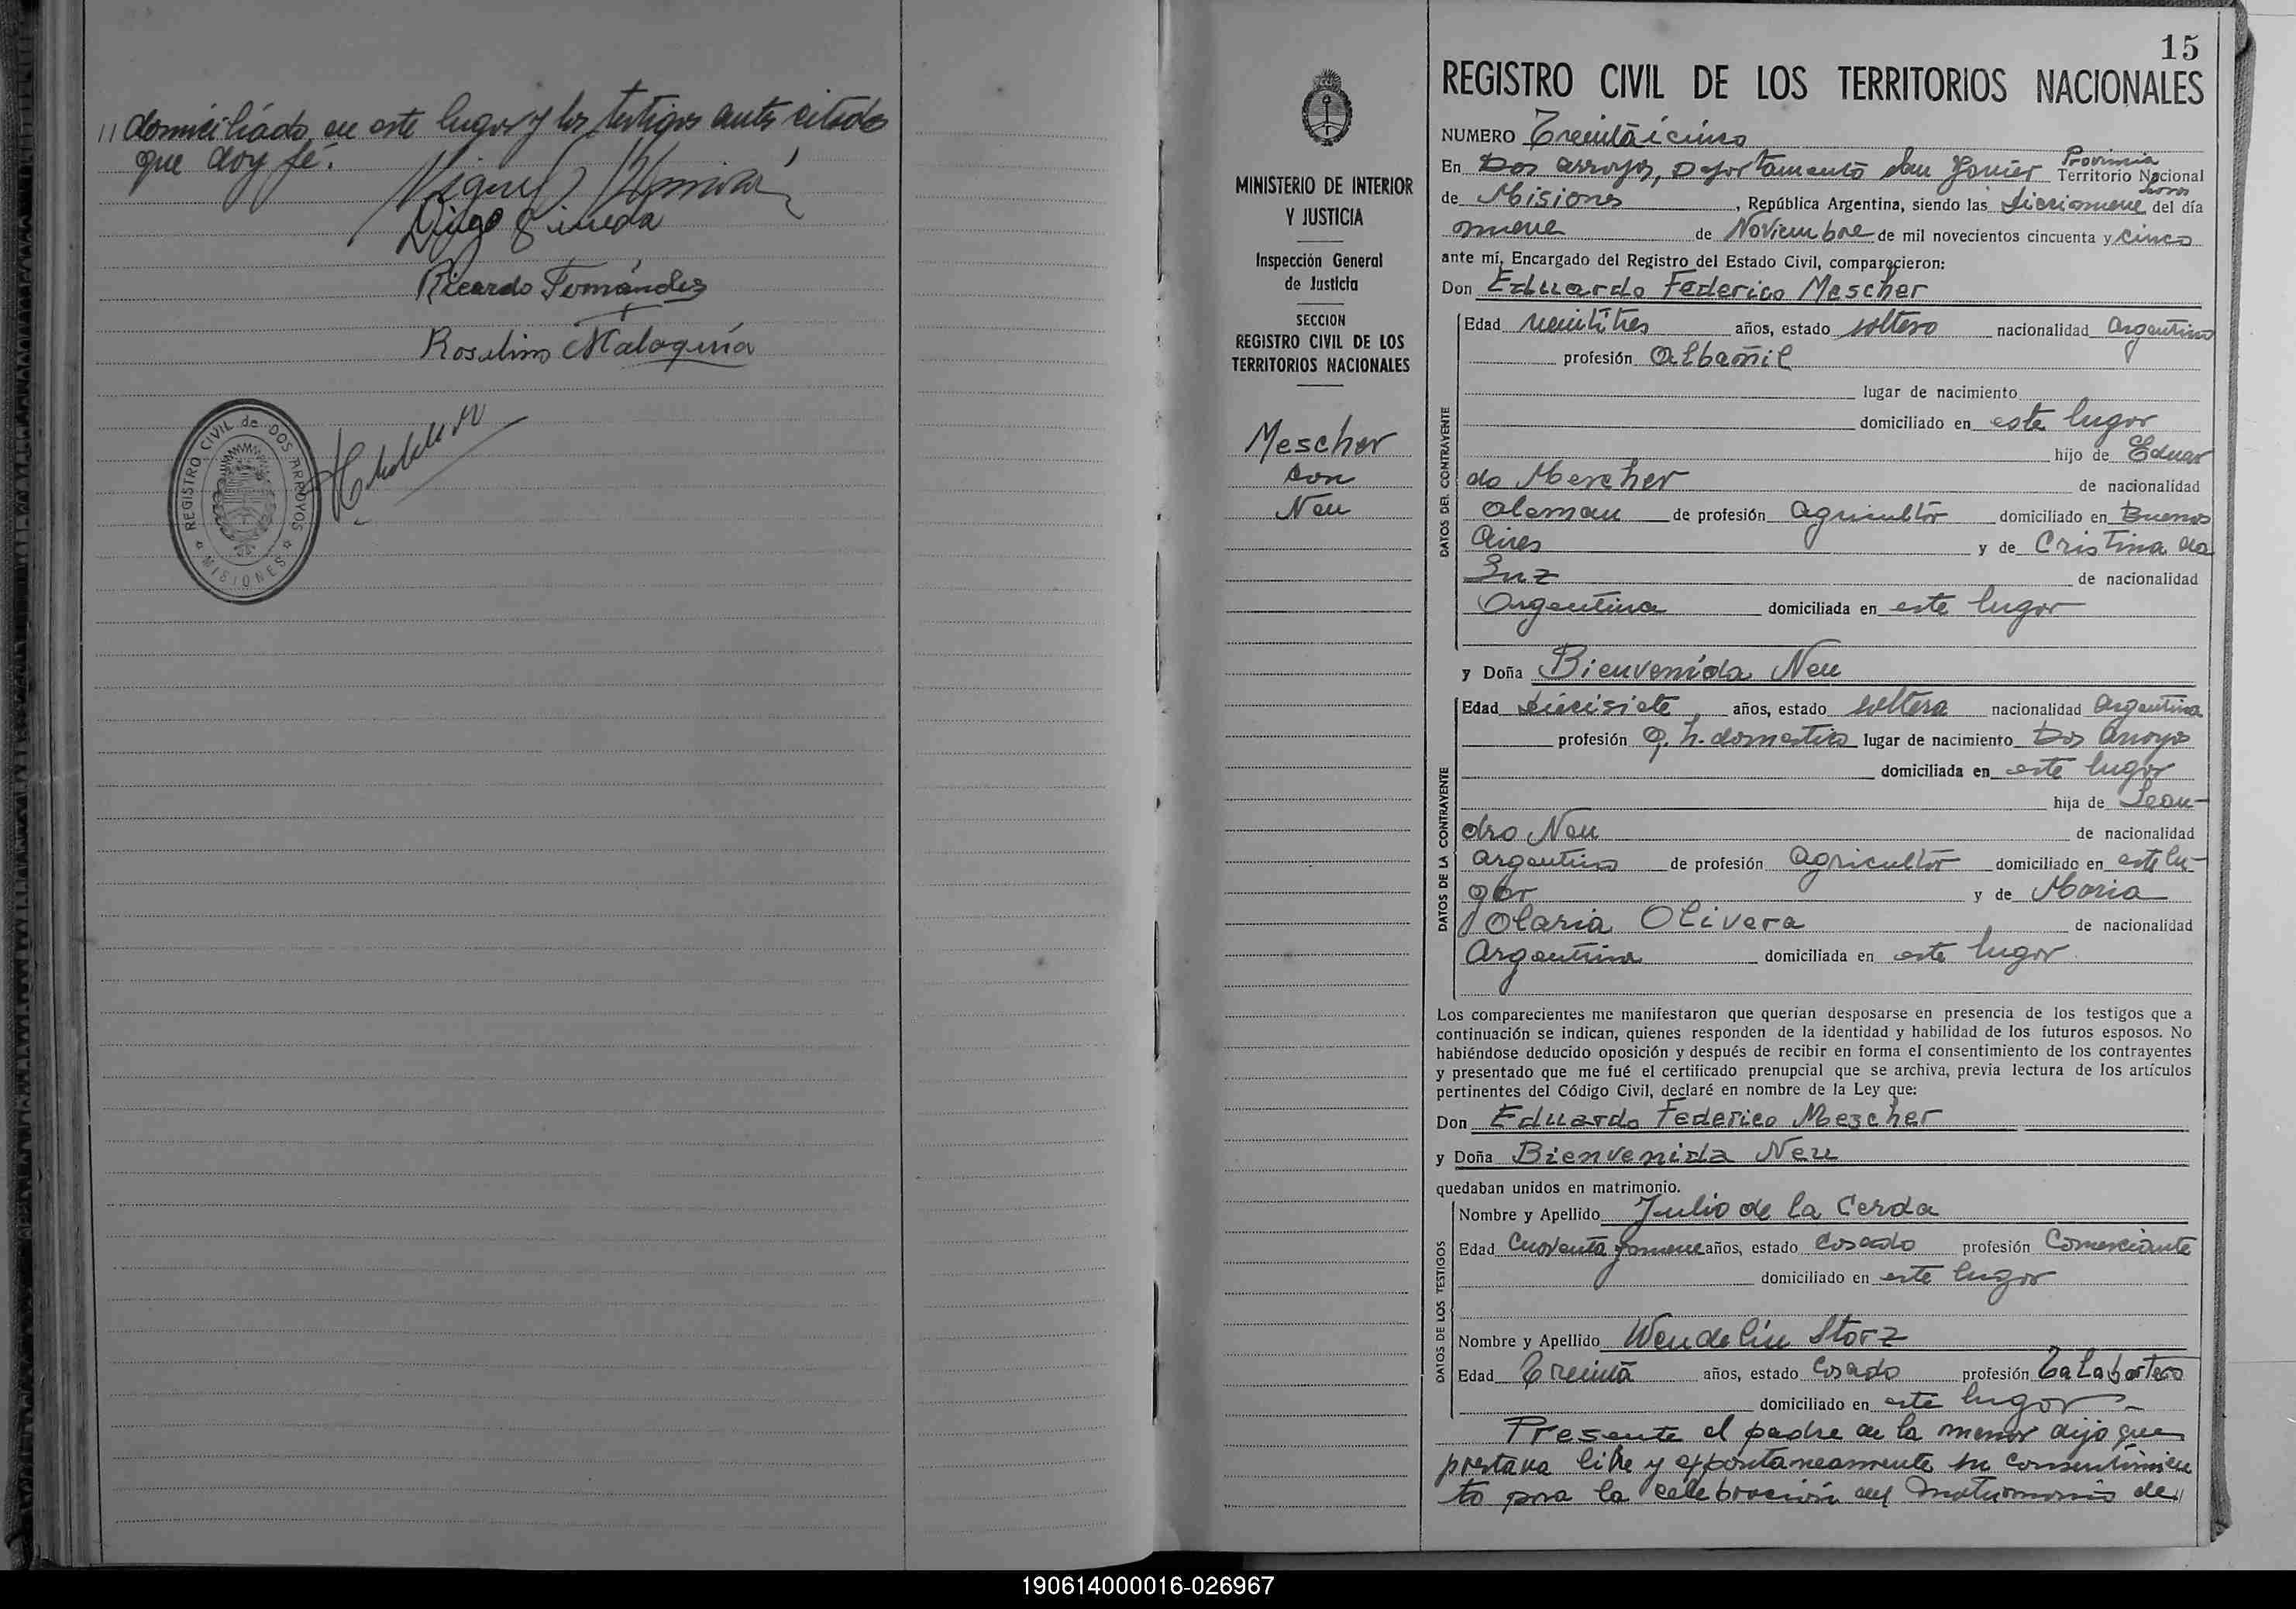 " domiciliado en este lugar y los testigos antes citados
que doy fé.
Diego Pineda
Ricardo Fernandez
Rosalino Malaguria
REGISTRO CIVIL de DOS ARROYOS
* MISIONES *
MINISTERIO DE INTERIOR
Y JUSTICIA
Inspección General
de Justicia
SECCION
REGISTRO CIVIL DE LOS
TERRITORIOS NACIONALES
Mescher
con
Neu
15
REGISTRO CIVIL DE LOS TERRITORIOS NACIONALES
NUMERO Treinta i cinco
En Dos arroyos, Departamento San Javier Provincia Territorio Nacional
de Misiones, República Argentina, siendo las diecinueve horas del día
nueve de Noviembre de mil novecientos cincuenta y cinco
ante mí, Encargado del Registro del Estado Civil, comparecieron:
Don Eduardo Federico Mescher
DATOS DEL CONTRAYENTE
Edad veintitres años, estado soltero nacionalidad Argentino
profesión Albañil
lugar de nacimiento
domiciliado en este lugar
hijo de Eduar
do Mescher de nacionalidad
aleman de profesión agricultor domiciliado en Buenos
Aires y de Cristina da
Luz de nacionalidad
Argentina domiciliada en este lugar
y Doña Bienvenida Neu
DATOS DE LA CONTRAYENTE
Edad diecisiete años, estado soltera nacionalidad Argentina
profesión Q. h. domestico lugar de nacimiento Dos Arroyos
domiciliada en este lugar
hija de Lean-
dro Neu de nacionalidad
argentino de profesión agricultor domiciliado en este lu-
gar y de Maria
Olaria Olivera de nacionalidad
Argentina domiciliada en este lugar
Los comparecientes me manifestaron que querían desposarse en presencia de los testigos que a
continuación se indican, quienes responden de la identidad y habilidad de los futuros esposos. No
habiéndose deducido oposición y después de recibir en forma el consentimiento de los contrayentes
y presentado que me fué el certificado prenupcial que se archiva, previa lectura de los artículos
pertinentes del Código Civil, declaré en nombre de la Ley que:
Don Eduardo Federico Mescher
y Doña Bienvenida Neu
quedaban unidos en matrimonio.
DATOS DE LOS TESTIGOS
Nombre y Apellido Julio de la Cerda
Edad Cuarenta y nueve años, estado Casado profesión Comerciante
domiciliado en este lugar
Nombre y Apellido Wendelin Storz
Edad Treinta años, estado Casado profesión Talabartero
domiciliado en este lugar
Presente el padre de la menor dijo que
prestava libre y espontaneamente su consentimien
to para la celebración del matrimonio de "
190614000016-026967